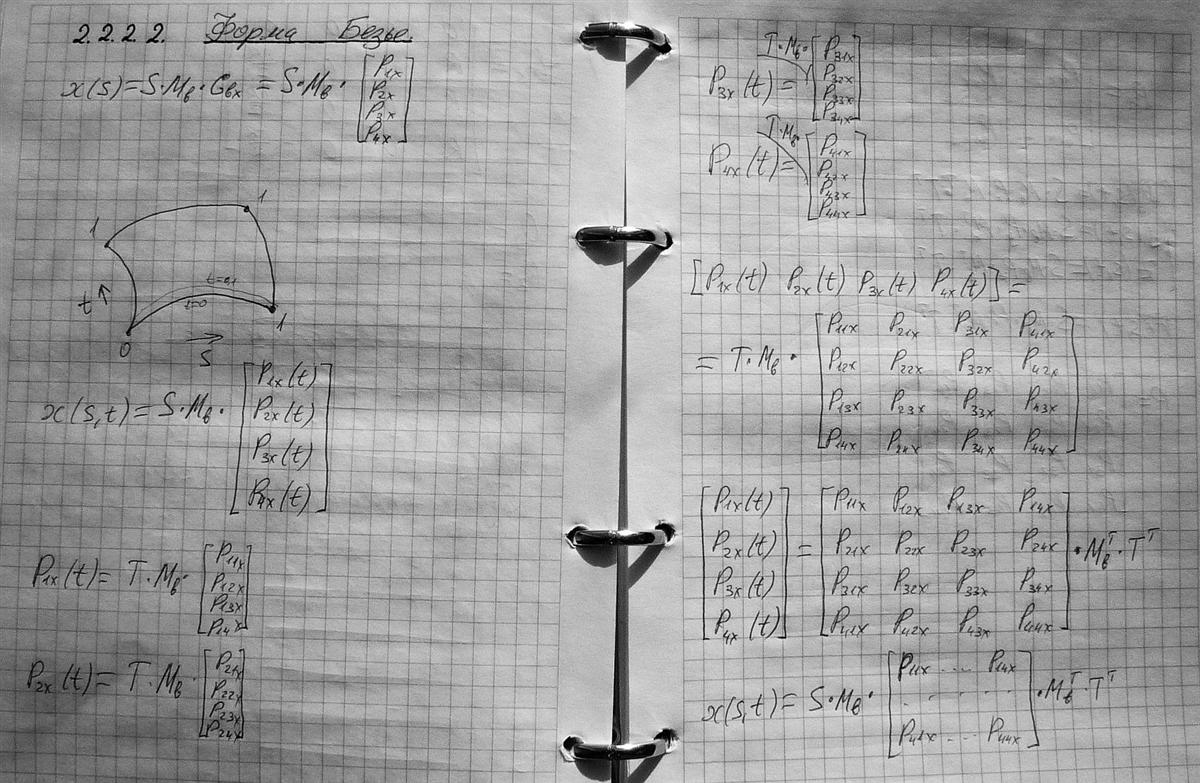 2.2.2.2. Форма Безье.
x(s) = S·Mв·Gвx = S·Mв· [P1x P2x P3x P4x]
1 1
t=0,1
t ↑ t=0
0 → S 1
x(s,t) = S·Mв· [P1x(t) P2x(t) P3x(t) P4x(t)]
P1x(t) = T·Mв· [P11x P12x P13x P14x]
P2x(t) = T·Mв· [P21x P22x P23x P24x]
P3x(t) = T·Mв· [P31x P32x P33x P34x]
P4x(t) = T·Mв· [P41x P42x P43x P44x]
[P1x(t) P2x(t) P3x(t) P4x(t)] =
= T·Mв· [P11x P21x P31x P41x
P12x P22x P32x P42x
P13x P23x P33x P43x
P14x P24x P34x P44x]
[P1x(t) P2x(t) P3x(t) P4x(t)] = [P11x P12x P13x P14x
P21x P22x P23x P24x
P31x P32x P33x P34x
P41x P42x P43x P44x] · Mв^T · T^T
x(s,t) = S·Mв· [P11x ... P14x
. . . . .
P41x ... P44x] · Mв^T · T^T